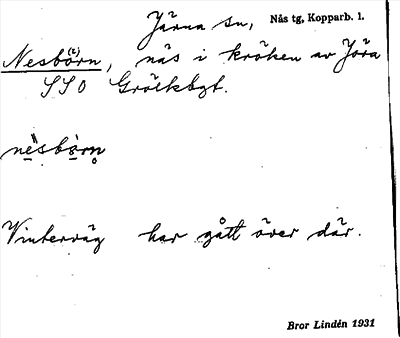 Järna sn, Nås tg, Kopparb. l.
Nesbörn (2), näs i kröken av Jöra
SSO Grölkbgt.
nèsbörn
Vinterväg har gått över där.
Bror Lindén 1931